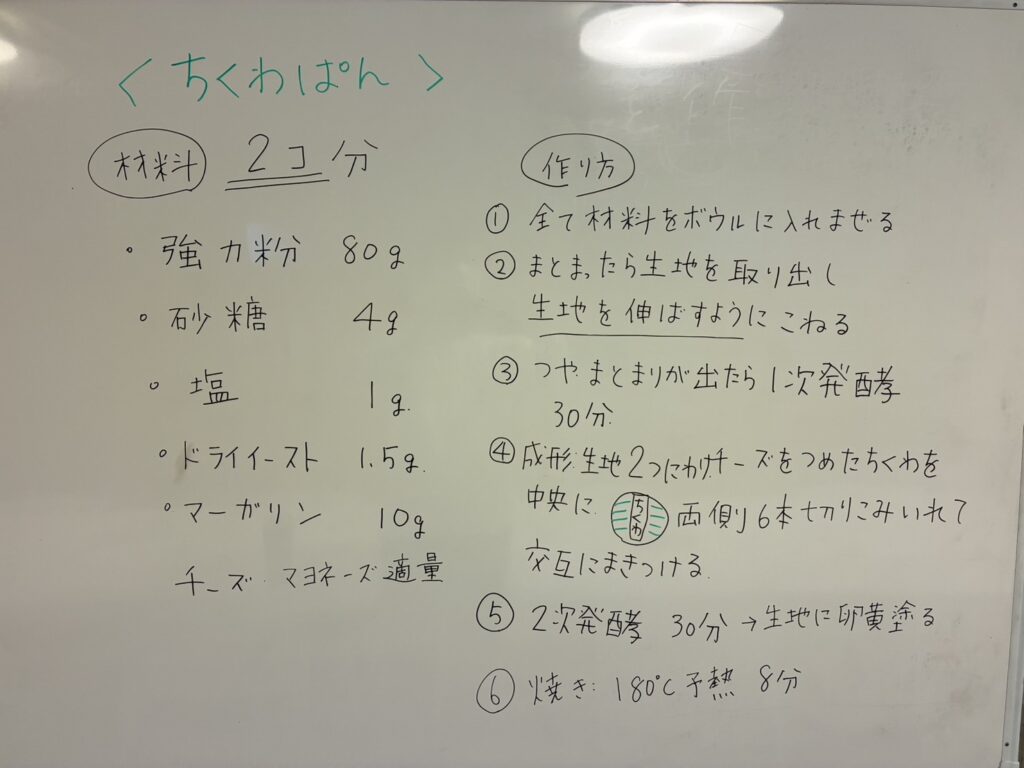 〈ちくわぱん〉
材料 2コ分
・強力粉 80g
・砂糖 4g
・塩 1g.
・ドライイースト 1.5g.
・マーガリン 10g
チーズ・マヨネーズ適量
作り方
① 全て材料をボウルに入れまぜる
② まとまったら生地を取り出し
生地を伸ばすようにこねる
③ つや まとまりが出たら1次発酵
30分
④ 成形:生地2つにわけチーズをつめたちくわを
中央に. ちくわ 両側り6本切りこみいれて
交互にまきつける.
⑤ 2次発酵 30分→生地に卵黄塗る
⑥ 焼き: 180℃予熱 8分